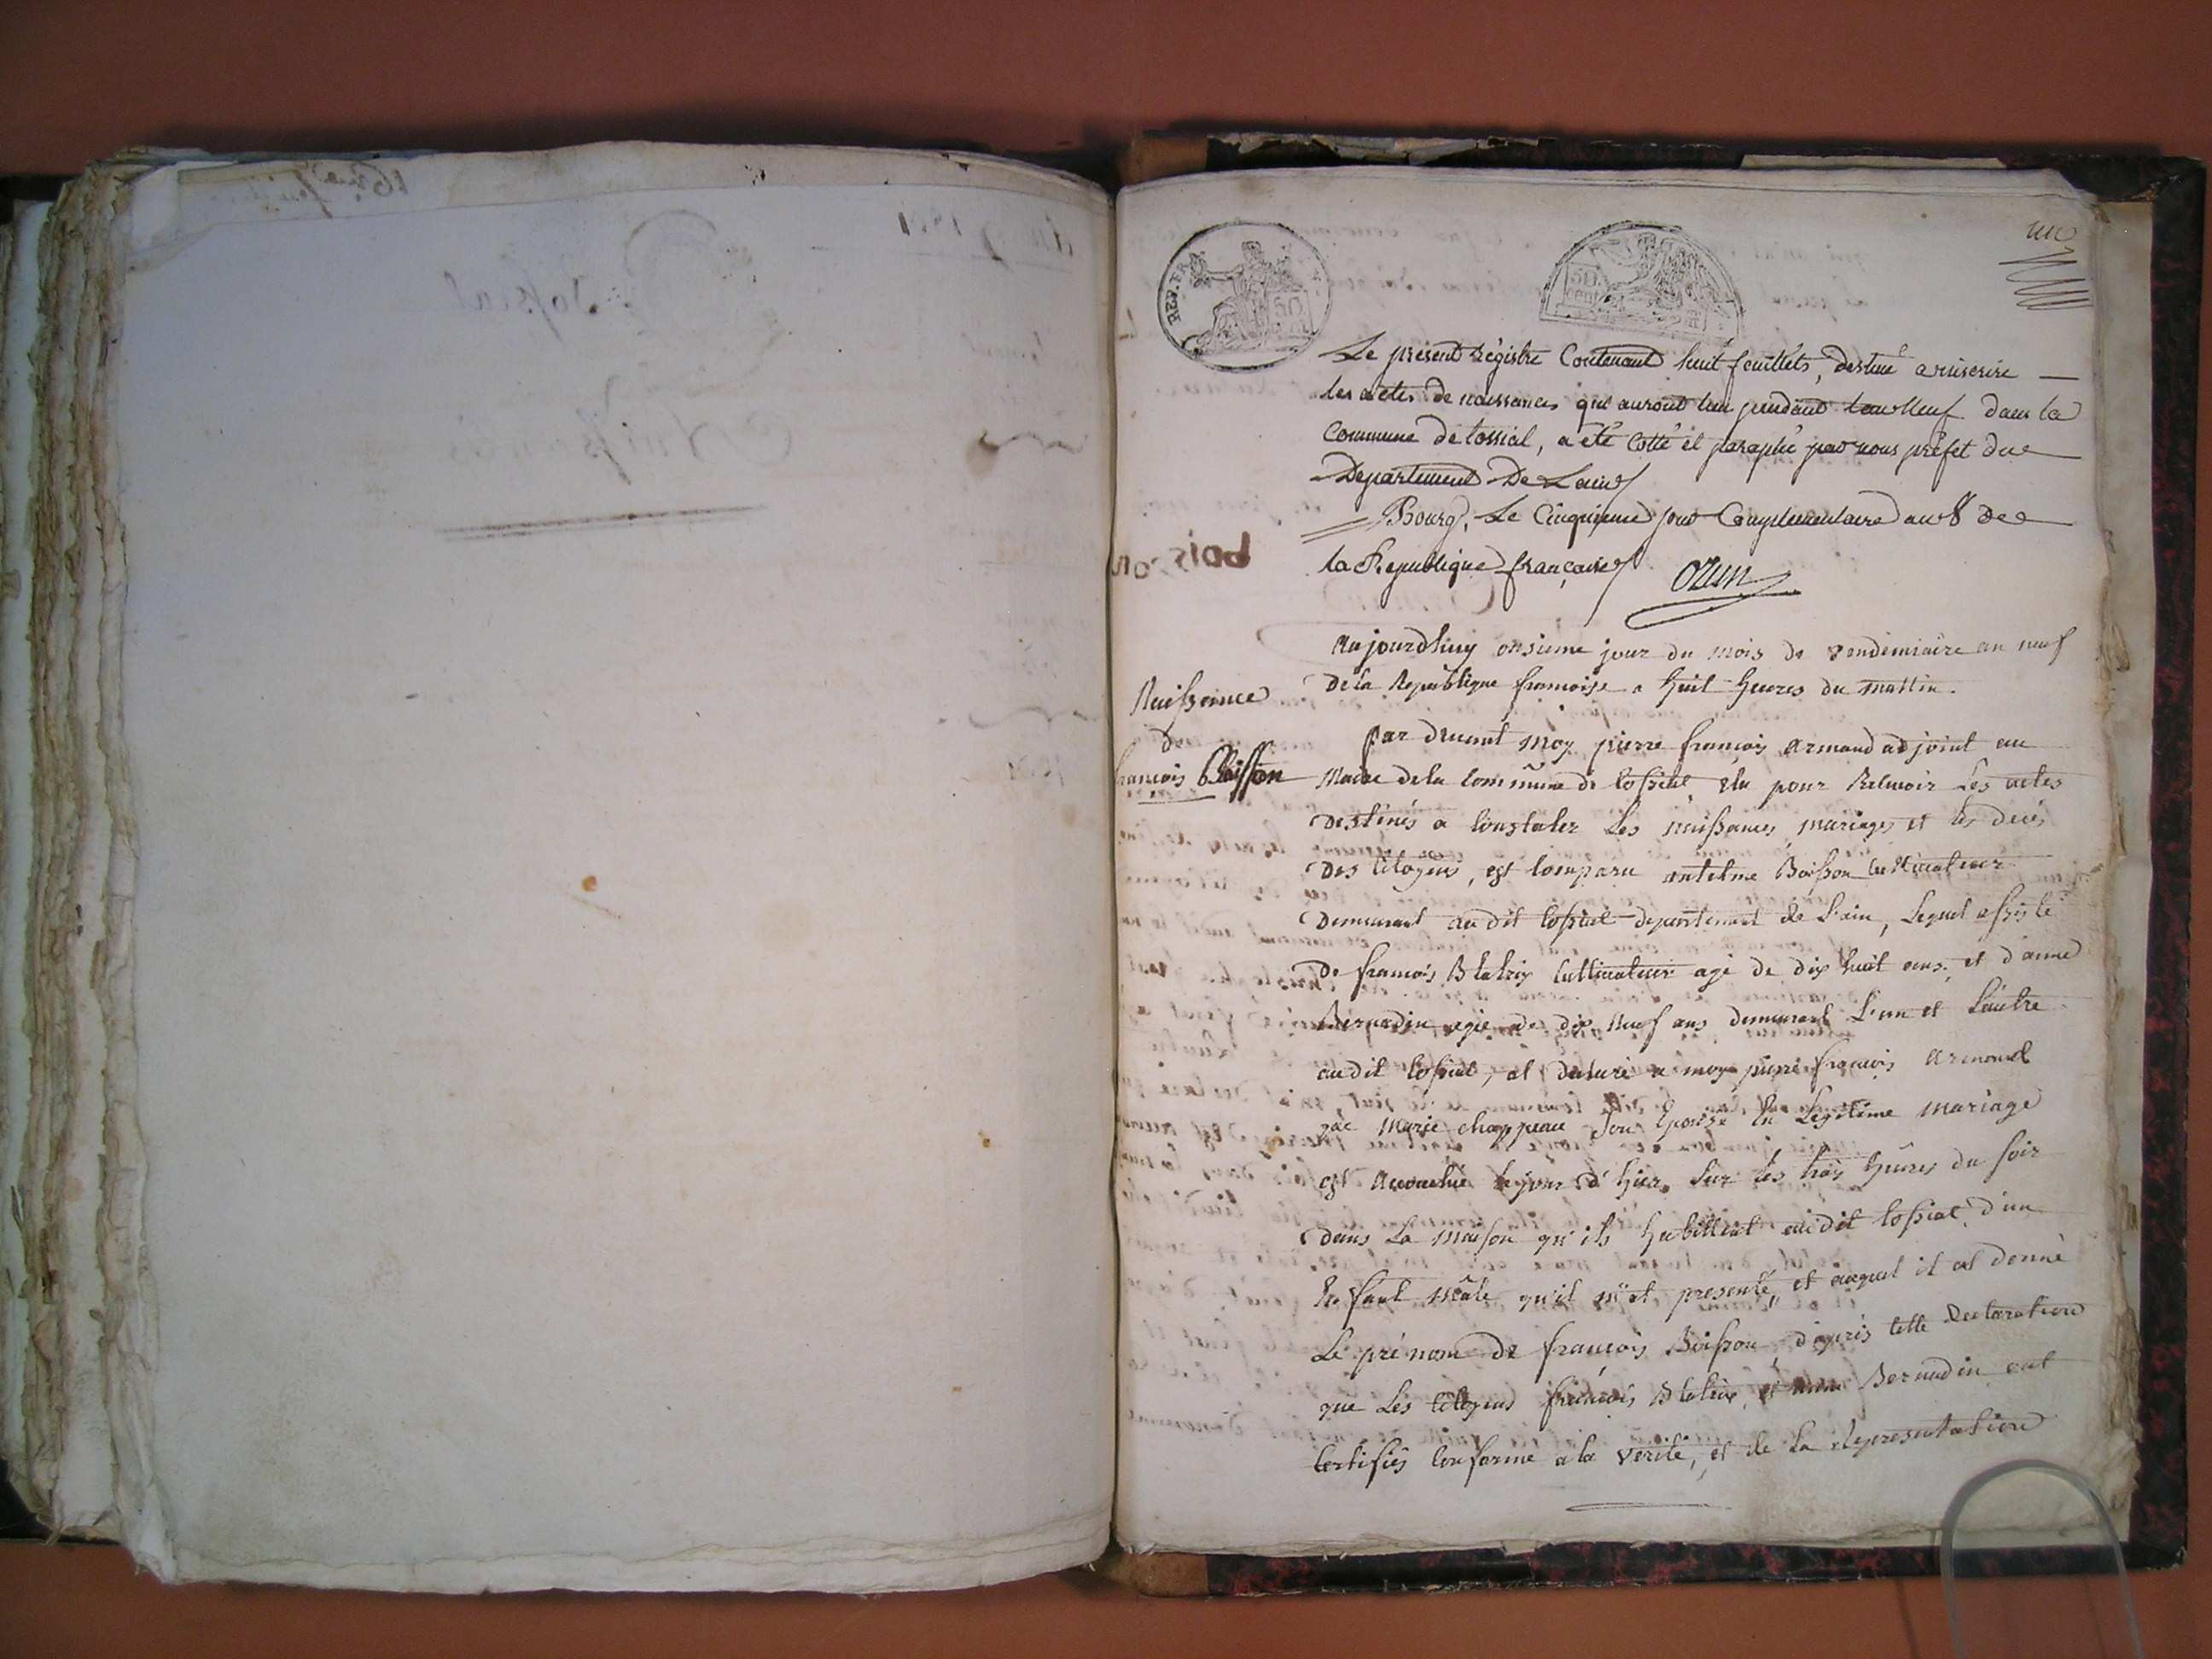 un
REP. FRA
50
50
cent
Le présent régistre Contenant huit feuillets, destiné a inscrire
les actes de naissances qui auront lieu pendant l'an Neuf dans la
Commune de tossiat, a été Cotté et paraphé par nous préfet du
Departement De L'ain
Bourg, Le Cinquieme jour Complementaire an 8 de
la Republique française
ozun
Aujourdhuy onsieme jour du mois de vendemiaire an neuf
De la Republique francoise a huit heures du mattin.
Naissance
de
francois Boisson
boisson
par devant moy pierre françois armand adjoint au
Maire de la Commune de tossiat Elu pour Recevoir Les actes
destinés a Constater Les naissances, mariages et les decés
des Citoyens, est Comparu antelme Boisson Cultivateur
demeurant au dit tossiat departement de L'ain, Lequel assisté
de francois Blatrix Cultivateur agé de dix huit ans, et d'anne
Bernadin agée de dix Neuf ans demeurant L'un et L'autre
audit tossiat, at declaré a moy pierre françois armand
que Marie chappeau Son Epouse En Legitime mariage
est accouchée le jour d'hier, Sur les trois heures du soir
dans La Maison qu'ils habittent audit tossiat, d'un
Enfant mâle qu'il m'at presenté, et auquel il at donné
Le prénom de françois Boisson, d'après Cette declaration
que Les Citoyens francois Blatrix, et anne Bernadin ont
Certifiés Conforme a la verité, et de la representation